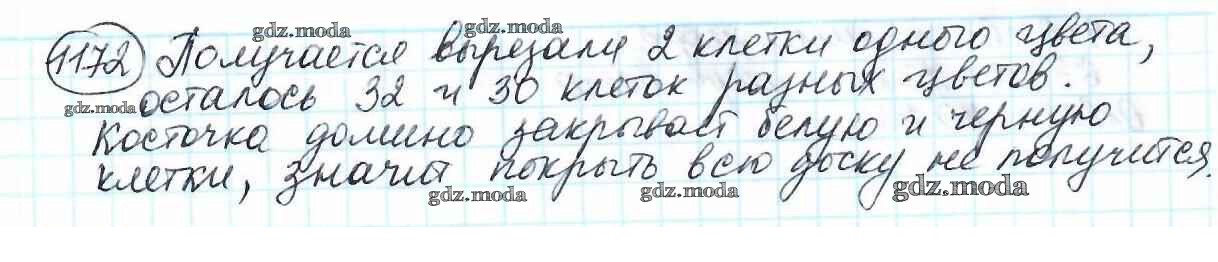 gdz.moda gdz.moda
1172 Получается вырезали 2 клетки одного цвета,
gdz.moda осталось 32 и 30 клеток разных цветов.
Косточка домино закрывает белую и черную
клетки, значит покрыть всю доску не получится.
gdz.moda gdz.moda gdz.moda